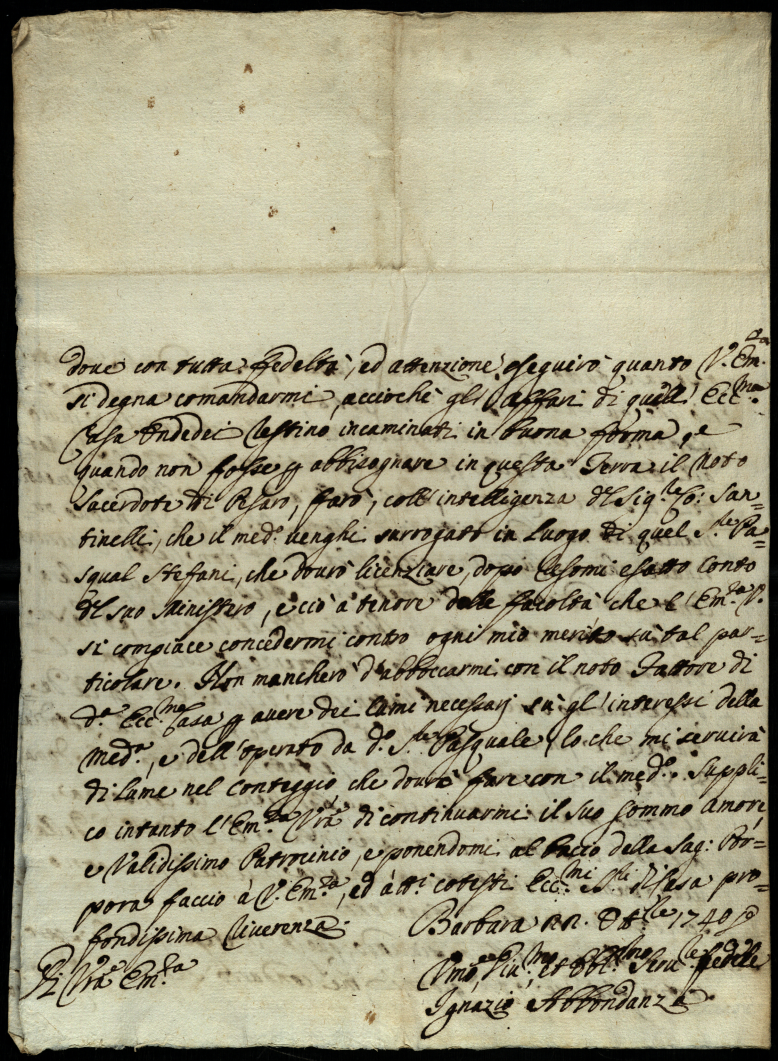 dove con tutta fedeltà, ed attenzione eseguirò quanto V. Em.za
si degna comandarmi, acciochè gli affari di quell' Ecc.ma
Casa restino incaminati in buona forma, e
quando non fosse p abbisognare in questa Terra il noto
Sacerdote di Pesaro, farò, coll' intelligenza del Sig.re Co: San=
tinelli, che il med.o venghi surrogato in luogo di quel S.re Pa=
squal Stefani, che dovrò licenziare, dopo resomi esatto conto
del suo Ministero, e ciò à tenore delle facoltà che l' Em.za V.
si compiace concedermi contro ogni mio merito sù tal par=
ticolare. Non mancherò d'abboccarmi con il noto Fattore di
d.a Ecc.ma Casa p avere dei lumi necessarj sù gl' interessi della
med.a, e dell' operato da d.o S.re Pasquale, lo che mi servirà
di lume nel conteggio che dovrò fare con il med.o. Suppli=
co intanto l' Em.za Vrã di continuarmi il suo sommo amore,
e Validissimo Patrocinio, e ponendomi al bacio della Sag: Por=
pora faccio à V. Em.za, ed à tt.i cotesti Ecc.mi S.ri di Casa pro=
fondissima riverenza.
Barbara 22. 8b.re 1740
Di Vrã Em.za
Umo, Div.mo, et Obbl.mo Serv.re fedele
Ignazio Abbondanza